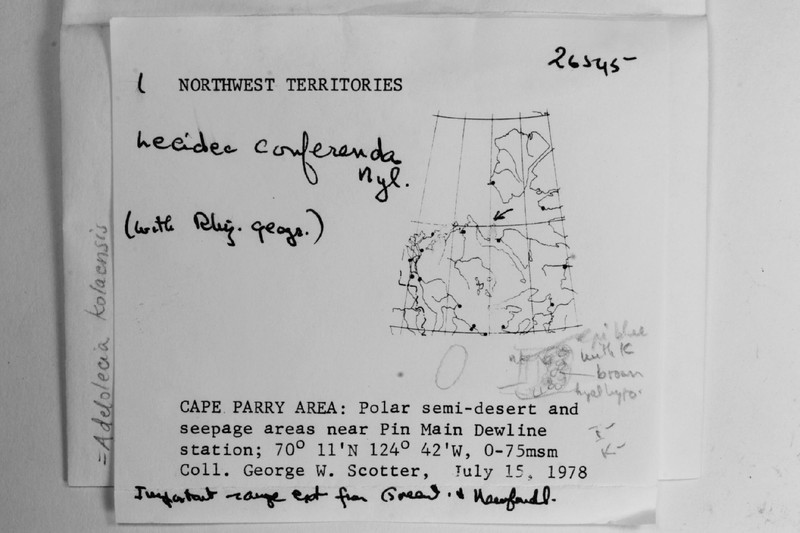 26545
( NORTHWEST TERRITORIES
Lecidea conferenda
Nyl.
(with Rhiz. geogr.)
epi blue
with K
brown
hyalhypo.
I-
K-
CAPE PARRY AREA: Polar semi-desert and
seepage areas near Pin Main Dewline
station; 70° 11'N 124° 42'W, 0-75msm
Coll. George W. Scotter, July 15, 1978
Important range ext from Greenl. & Newfoundl.
=Adelolecia kolaensis